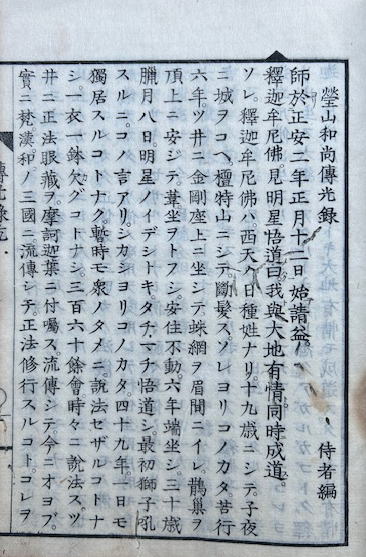 瑩山和尚傳光錄
侍者編
師於正安二年正月十二日始請益。
釋迦牟尼佛。見明星悟道曰。我與大地有情。同時成道。
ソレ。釋迦牟尼佛ハ。西天ノ日種姓ナリ。十九歳ニシテ。子夜
ニ城ヲコヘ。檀特山ニシテ。斷髮ス。ソレヨリコノカタ。苦行
六年。ツ井ニ金剛座上ニ坐シテ。蛛網ヲ眉間ニイレ。鵲巢ヲ
頂上ニ安ジテ。葦坐ヲトフシ。安住不動。六年端坐シ。三十歳
臘月八日。明星ノイデシトキ。タチマチ悟道シ。最初獅子吼
スルニ。コノ言アリ。シカシヨリコノカタ。四十九年。一日モ
獨居スルコトナク。暫時モ衆ノタメニ。說法セザルコトナ
シ。一衣一鉢欠グコトナシ。三百六十餘會。時々ニ說法ス。ツ
井ニ正法眼藏ヲ。摩訶迦葉ニ付囑ス。流傳シテ今ニオヨブ。
實ニ梵漢和ノ三國ニ流傳シテ。正法修行スルコト。コレヲ